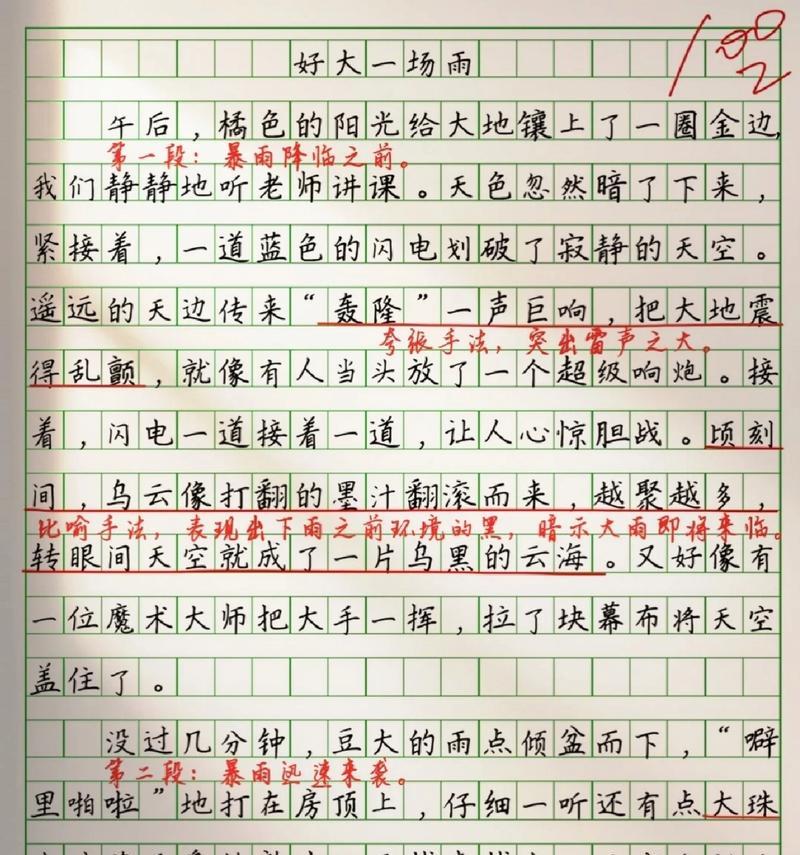 100
2
好大一场雨
午后，橘色的阳光给大地镶上了一圈金边，
第一段：暴雨降临之前。
我们静静地听老师讲课。天色忽然暗了下来，
紧接着，一道蓝色的闪电划破了寂静的天空。
遥远的天边传来“轰隆”一声巨响，把大地震
夸张手法，突出雷声之大。
得乱颤，就像有人当头放了一个超级响炮。接
着，闪电一道接着一道，让人心惊胆战。顷刻
间，乌云像打翻的墨汁翻滚而来，越聚越多，
比喻手法，表现出下雨之前环境的黑，暗示大雨即将来临。
转眼间天空就成了一片乌黑的云海。又好像有
一位魔术大师把大手一挥，拉了块幕布将天空
盖住了。
没过几分钟，豆大的雨点倾盆而下，“噼
第二段：暴雨迅速来袭。
里啪啦”地打在房顶上，仔细一听还有点大珠